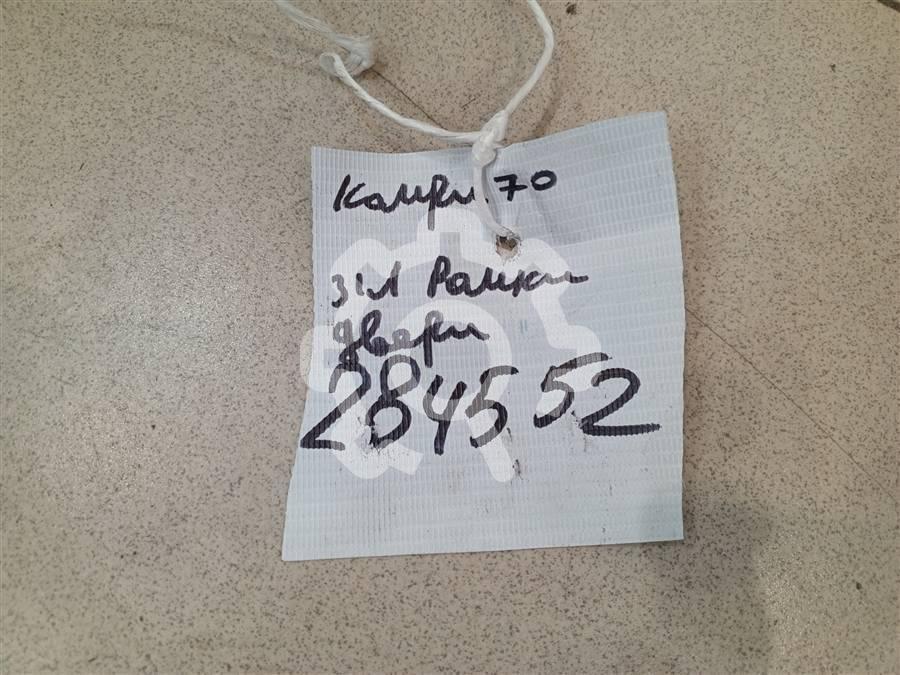 Камри 70
з/л Рамки
двери
284552